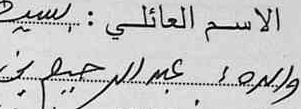 الاسم العائلي : السيد
والده : عبد الرحيم بن